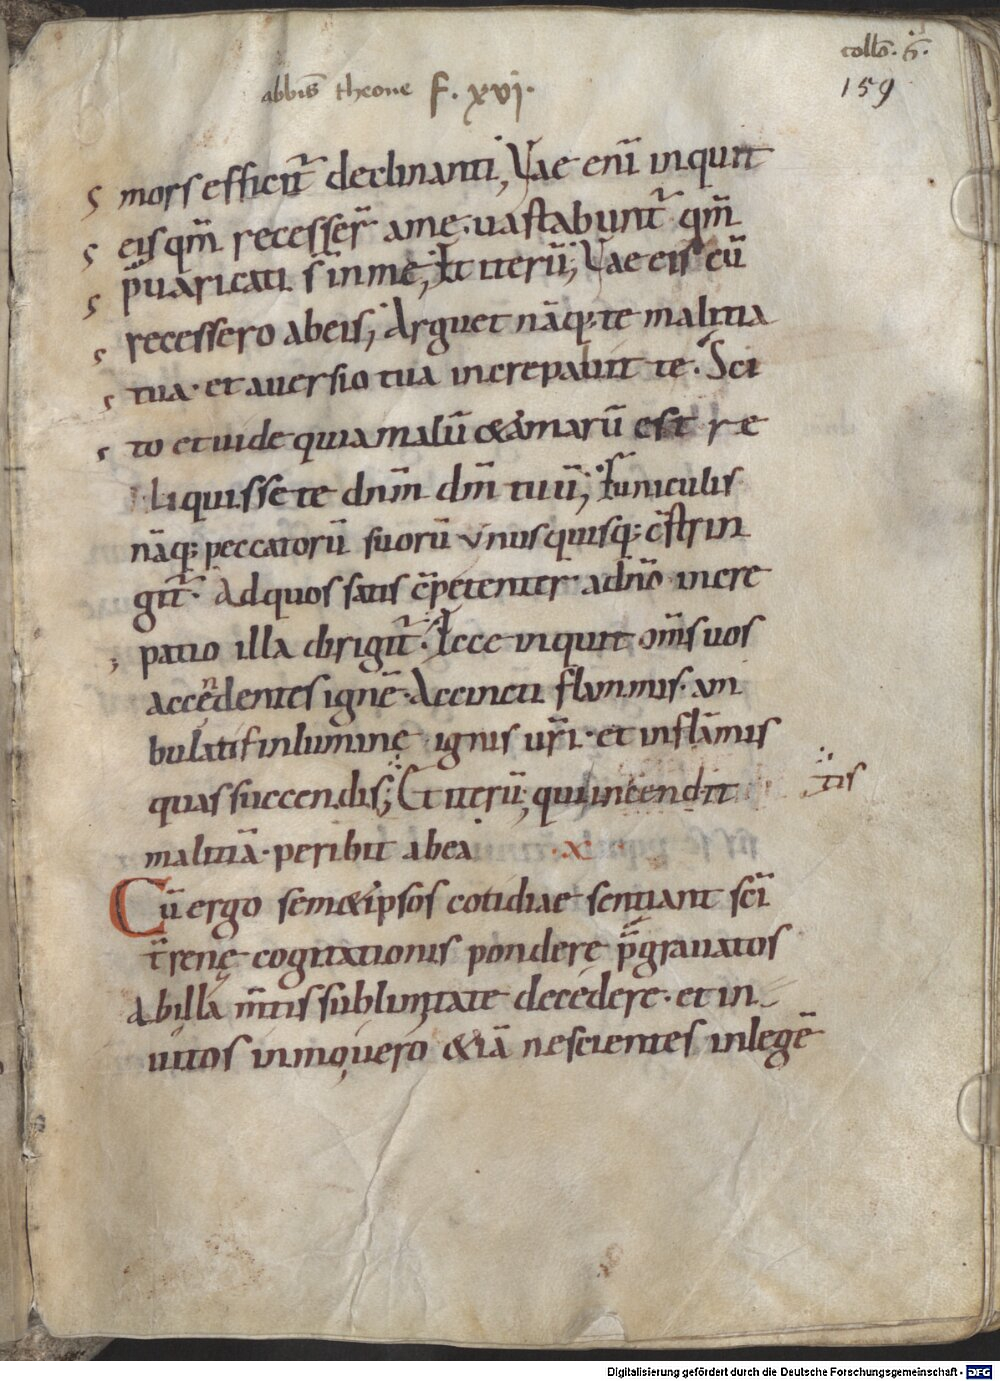 collō. 
159
abbīs theone F. xvi.
mors efficit᷑ declinanti, Vae enī inquit
eis qm̄ recesser̄ a me. uastabunt᷑ qm̄
p̄uaricati s̄ in me, Et iterū; Vae eis cū
recessero ab eis; Arguet nāq; te malitia
tua. et auersio tua increpabit te. Sci
to et uide quia malū & amarū est re
liquisse te dnm̄ dm̄ tuū; Funiculis
nāq; peccatorū suorū vnusquisq; c̄strin
git᷑. Ad quos satis c̄petenter adnō incre
patio illa dirigit᷑. Ecce inquit om̄s uos
accendentes ignē. Accincti flammis. am
bulatis in lumine ignis ur̄i. et in flāmis
quas succendistis; Et iterū; qui incendit
malitiā. peribit ab ea x
Cū ergo semet ipsos cotidiae sentiant sc̄i
t̄renę cogitationis pondere p̄grauatos
Ab illa m̄tis sublimitate decedere. et in
uitos immo uero & iā nescientes in legē